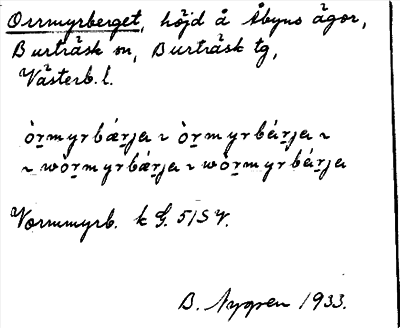 Orrmyrberget, höjd å Åbyns ägor,
Burträsk sn, Burträsk tg,
Västerb. l.
òr̠myrbǽr̠ja ~ òr̠myrbár̠ja ~
~ wòr̠myrbǽr̠ja ~ wòr̠myrbár̠ja
Vormmyrb. k G. 51SV.
B. Nygren 1933.